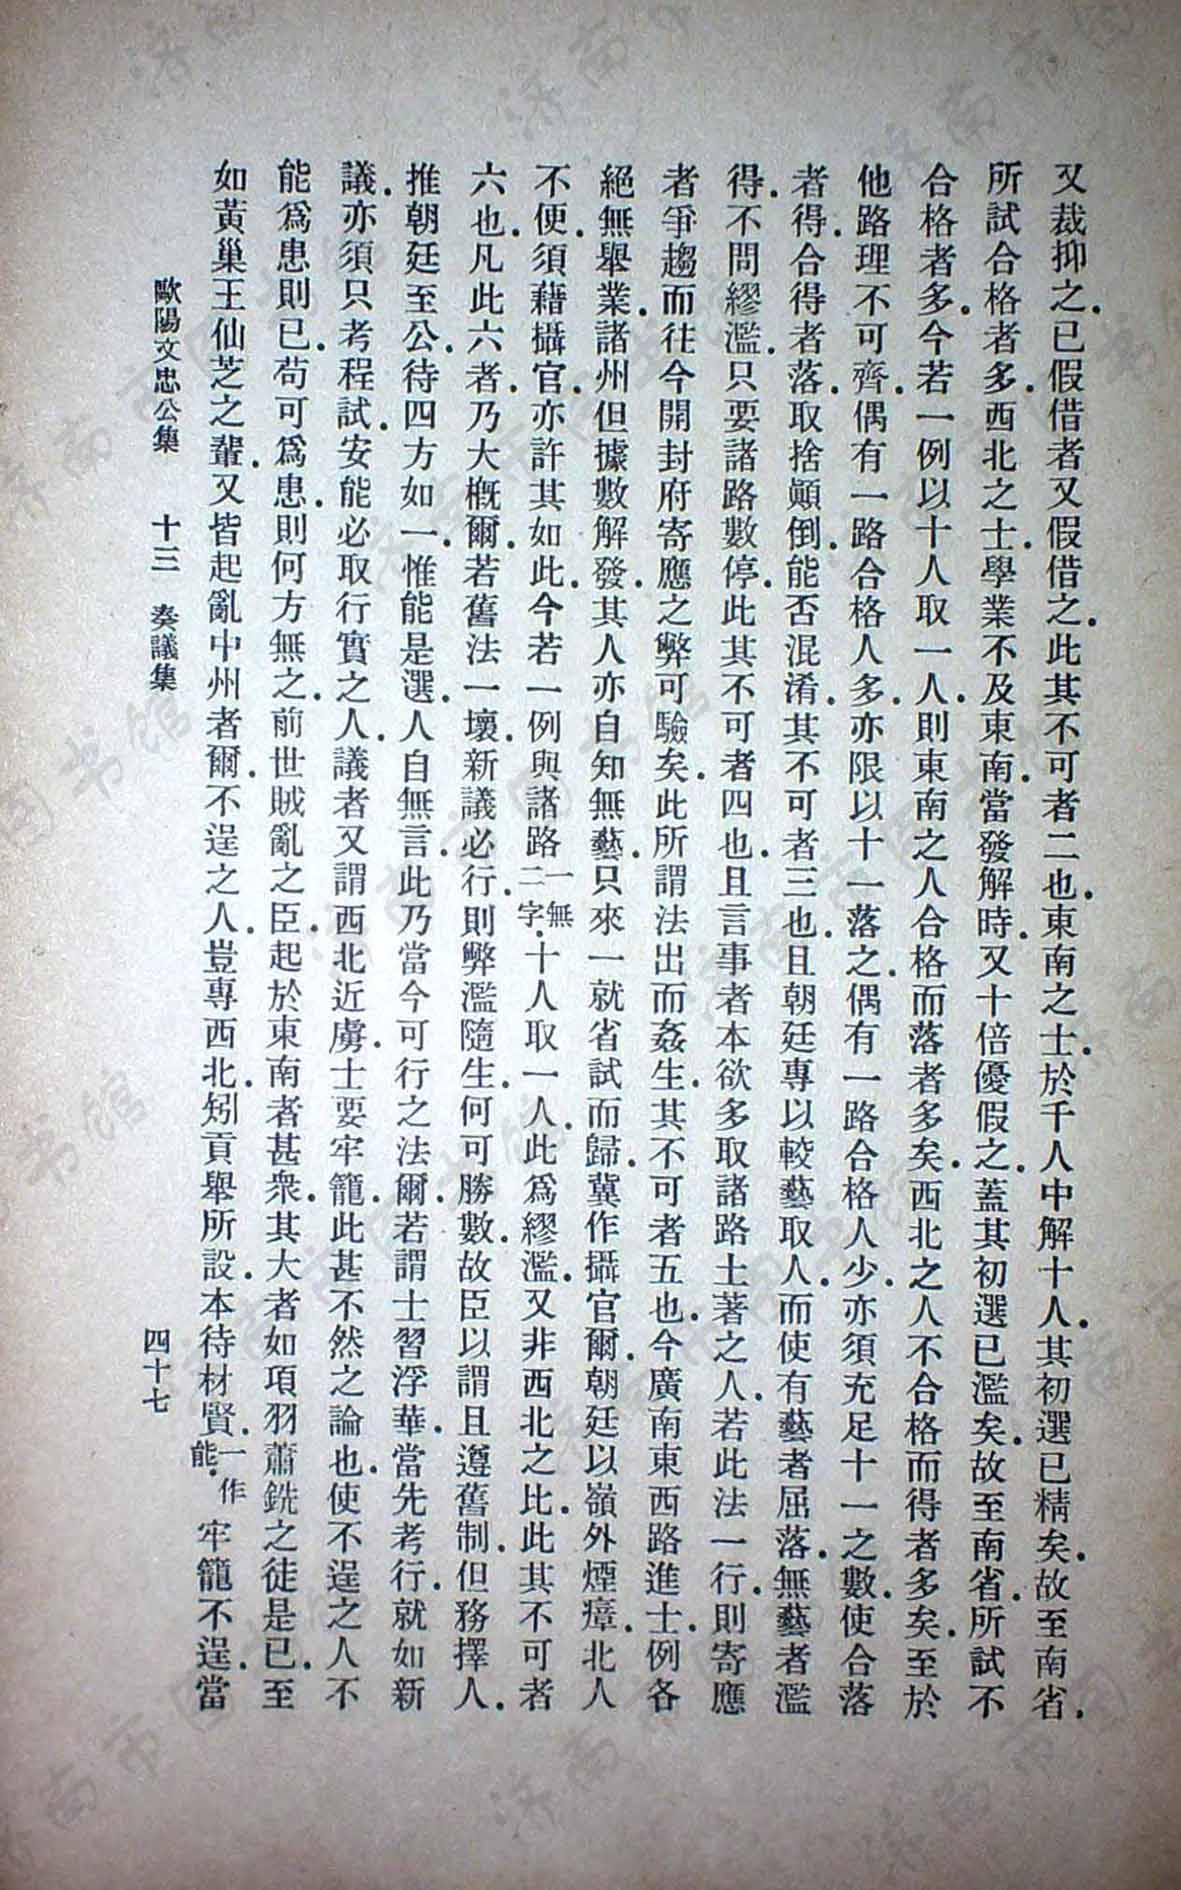 又裁抑之．已假借者又假借之．此其不可者二也．東南之士．於千人中解十人．其初選已精矣．故至南省．
所試合格者多．西北之士．學業不及東南．當發解時．又十倍優假之．蓋其初選已濫矣．故至南省．所試不
合格者多．今若一例以十人取一人．則東南之人合格而落者多矣．西北之人不合格而得者多矣．至於
他路理不可齊．偶有一路合格人多．亦限以十一落之．偶有一路合格人少．亦須充足十一之數．使合落
者得．合得者落．取捨顚倒．能否混淆．其不可者三也．且朝廷專以較藝取人．而使有藝者屈落．無藝者濫
得．不問繆濫．只要諸路數停．此其不可者四也．且言事者本欲多取諸路土著之人．若此法一行．則寄應
者爭趨而往．今開封府寄應之弊可驗矣．此所謂法出而姦生．其不可者五也．今廣南東西路進士．例各
絕無舉業．諸州但據數解發．其人亦自知無藝．只來一就省試而歸．冀作攝官爾．朝廷以嶺外煙瘴．北人
不便．須藉攝官．亦許其如此．今若一例與諸路一無二字．十人取一人．此爲繆濫．又非西北之比．此其不可者
六也．凡此六者．乃大槪爾．若舊法一壞．新議必行．則弊濫隨生．何可勝數．故臣以謂且遵舊制．但務擇人．
推朝廷至公．待四方如一．惟能是選．人自無言．此乃當今可行之法爾．若謂士習浮華．當先考行．就如新
議．亦須只考程試．安能必取行實之人．議者又謂西北近虜．士要牢籠．此甚不然之論也．使不逞之人不
能爲患則已．苟可爲患．則何方無之．前世賊亂之臣．起於東南者甚衆．其大者如項羽蕭銑之徒是已．至
如黃巢王仙芝之輩．又皆起亂中州者爾．不逞之人．豈專西北．矧貢舉所設．本待材賢．一作能．牢籠不逞．當
歐陽文忠公集　十三　奏議集　四十七
济南市图书馆